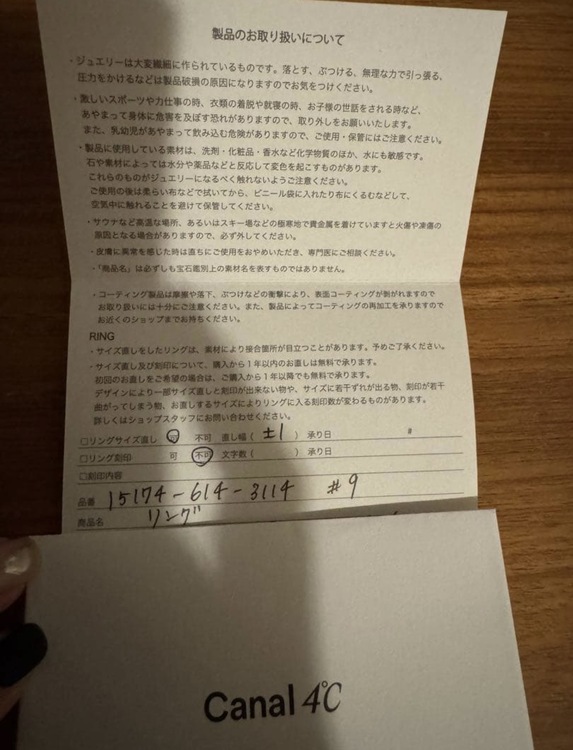 製品のお取り扱いについて
・ジュエリーは大変繊細に作られているものです。落とす、ぶつける、無理な力で引っ張る、
圧力をかけるなどは製品破損の原因になりますのでお気をつけください。
・激しいスポーツや力仕事の時、衣類の着脱や就寝の時、お子様の世話をされる時など、
あやまって身体に危害を及ぼす恐れがありますので、取り外しをお願いいたします。
また、乳幼児があやまって飲み込む危険がありますので、ご使用・保管にはご注意ください。
・製品に使用している素材は、洗剤・化粧品・香水など化学物質のほか、水にも敏感です。
石や素材によっては水分や薬品などと反応して変色を起こすものがあります。
これらのものがジュエリーになるべく触れないようご注意ください。
ご使用の後は柔らかい布などで拭いてから、ビニール袋に入れたり布にくるむなどして、
空気中に触れることを避けて保管してください。
・サウナなど高温な場所、あるいはスキー場などの極寒地で貴金属を着けていますと火傷や凍傷の
原因となる場合がありますので、必ず外してください。
・皮膚に異常を感じた時は直ちにご使用をおやめいただき、専門医にご相談ください。
・「商品名」は必ずしも宝石鑑別上の素材名を表すものではありません。
・コーティング製品は摩擦や落下、ぶつけなどの衝撃により、表面コーティングが剥がれますので
お取り扱いには十分にご注意ください。また、製品によってコーティングの再加工を承りますので
お近くのショップまでお持ちください。
RING
・サイズ直しをしたリングは、素材により接合箇所が目立つことがあります。予めご了承ください。
・サイズ直し及び刻印について、購入から1年以内のお直しは無料で承ります。
初回のお直しをご希望の場合は、ご購入から1年以降でも無料で承ります。
デザインにより一部サイズ直しと刻印が出来ない物や、サイズに若干ずれが出る物、刻印が若干
曲がってしまう物、お直しするサイズによりリングに入る刻印数が変わるものがあります。
詳しくはショップスタッフにお問い合わせください。
□リングサイズ直し 可 不可 直し幅( ±1 ) 承り日 #
□リング刻印 可 不可 文字数( ) 承り日
□刻印内容
品番 15174-614-3114 #9
商品名 リング
Canal 4℃